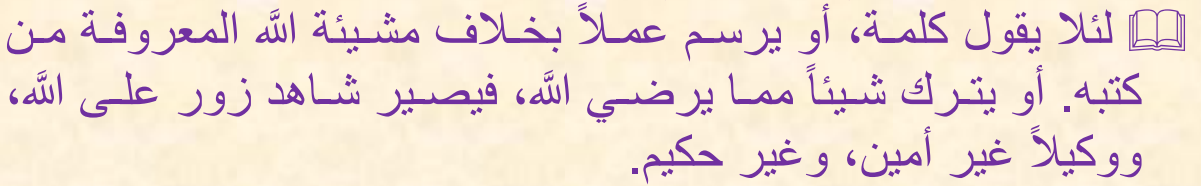 لئلا يقول كلمة، أو يرسم عملاً بخلاف مشيئة الله المعروفة من
كتبه. أو يترك شيئاً مما يرضي الله، فيصير شاهد زور على الله،
ووكيلاً غير أمين، وغير حكيم.